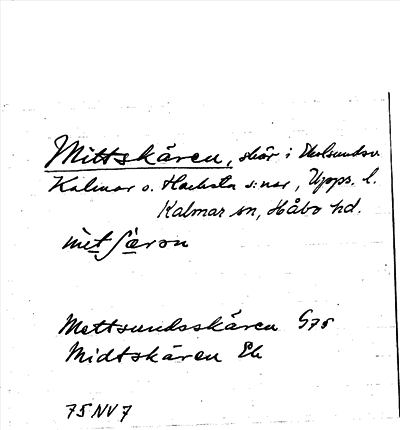 Mittskären, skär i Ekolsundsv.
Kalmar o. Hacksta s:nar, Upps. l.
Kalmar sn, Håbo hd.
mìtʃæ̀rɔn
Mettsundsskären G75
Midtskären Ek
75 NV 7